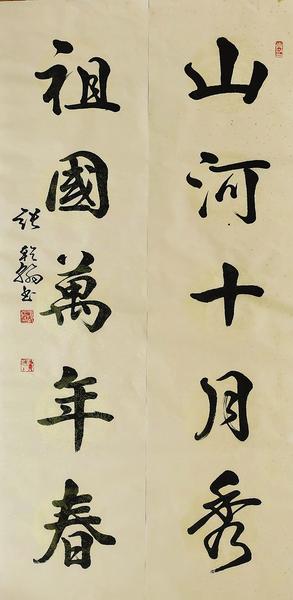 山河十月秀
祖國萬年春